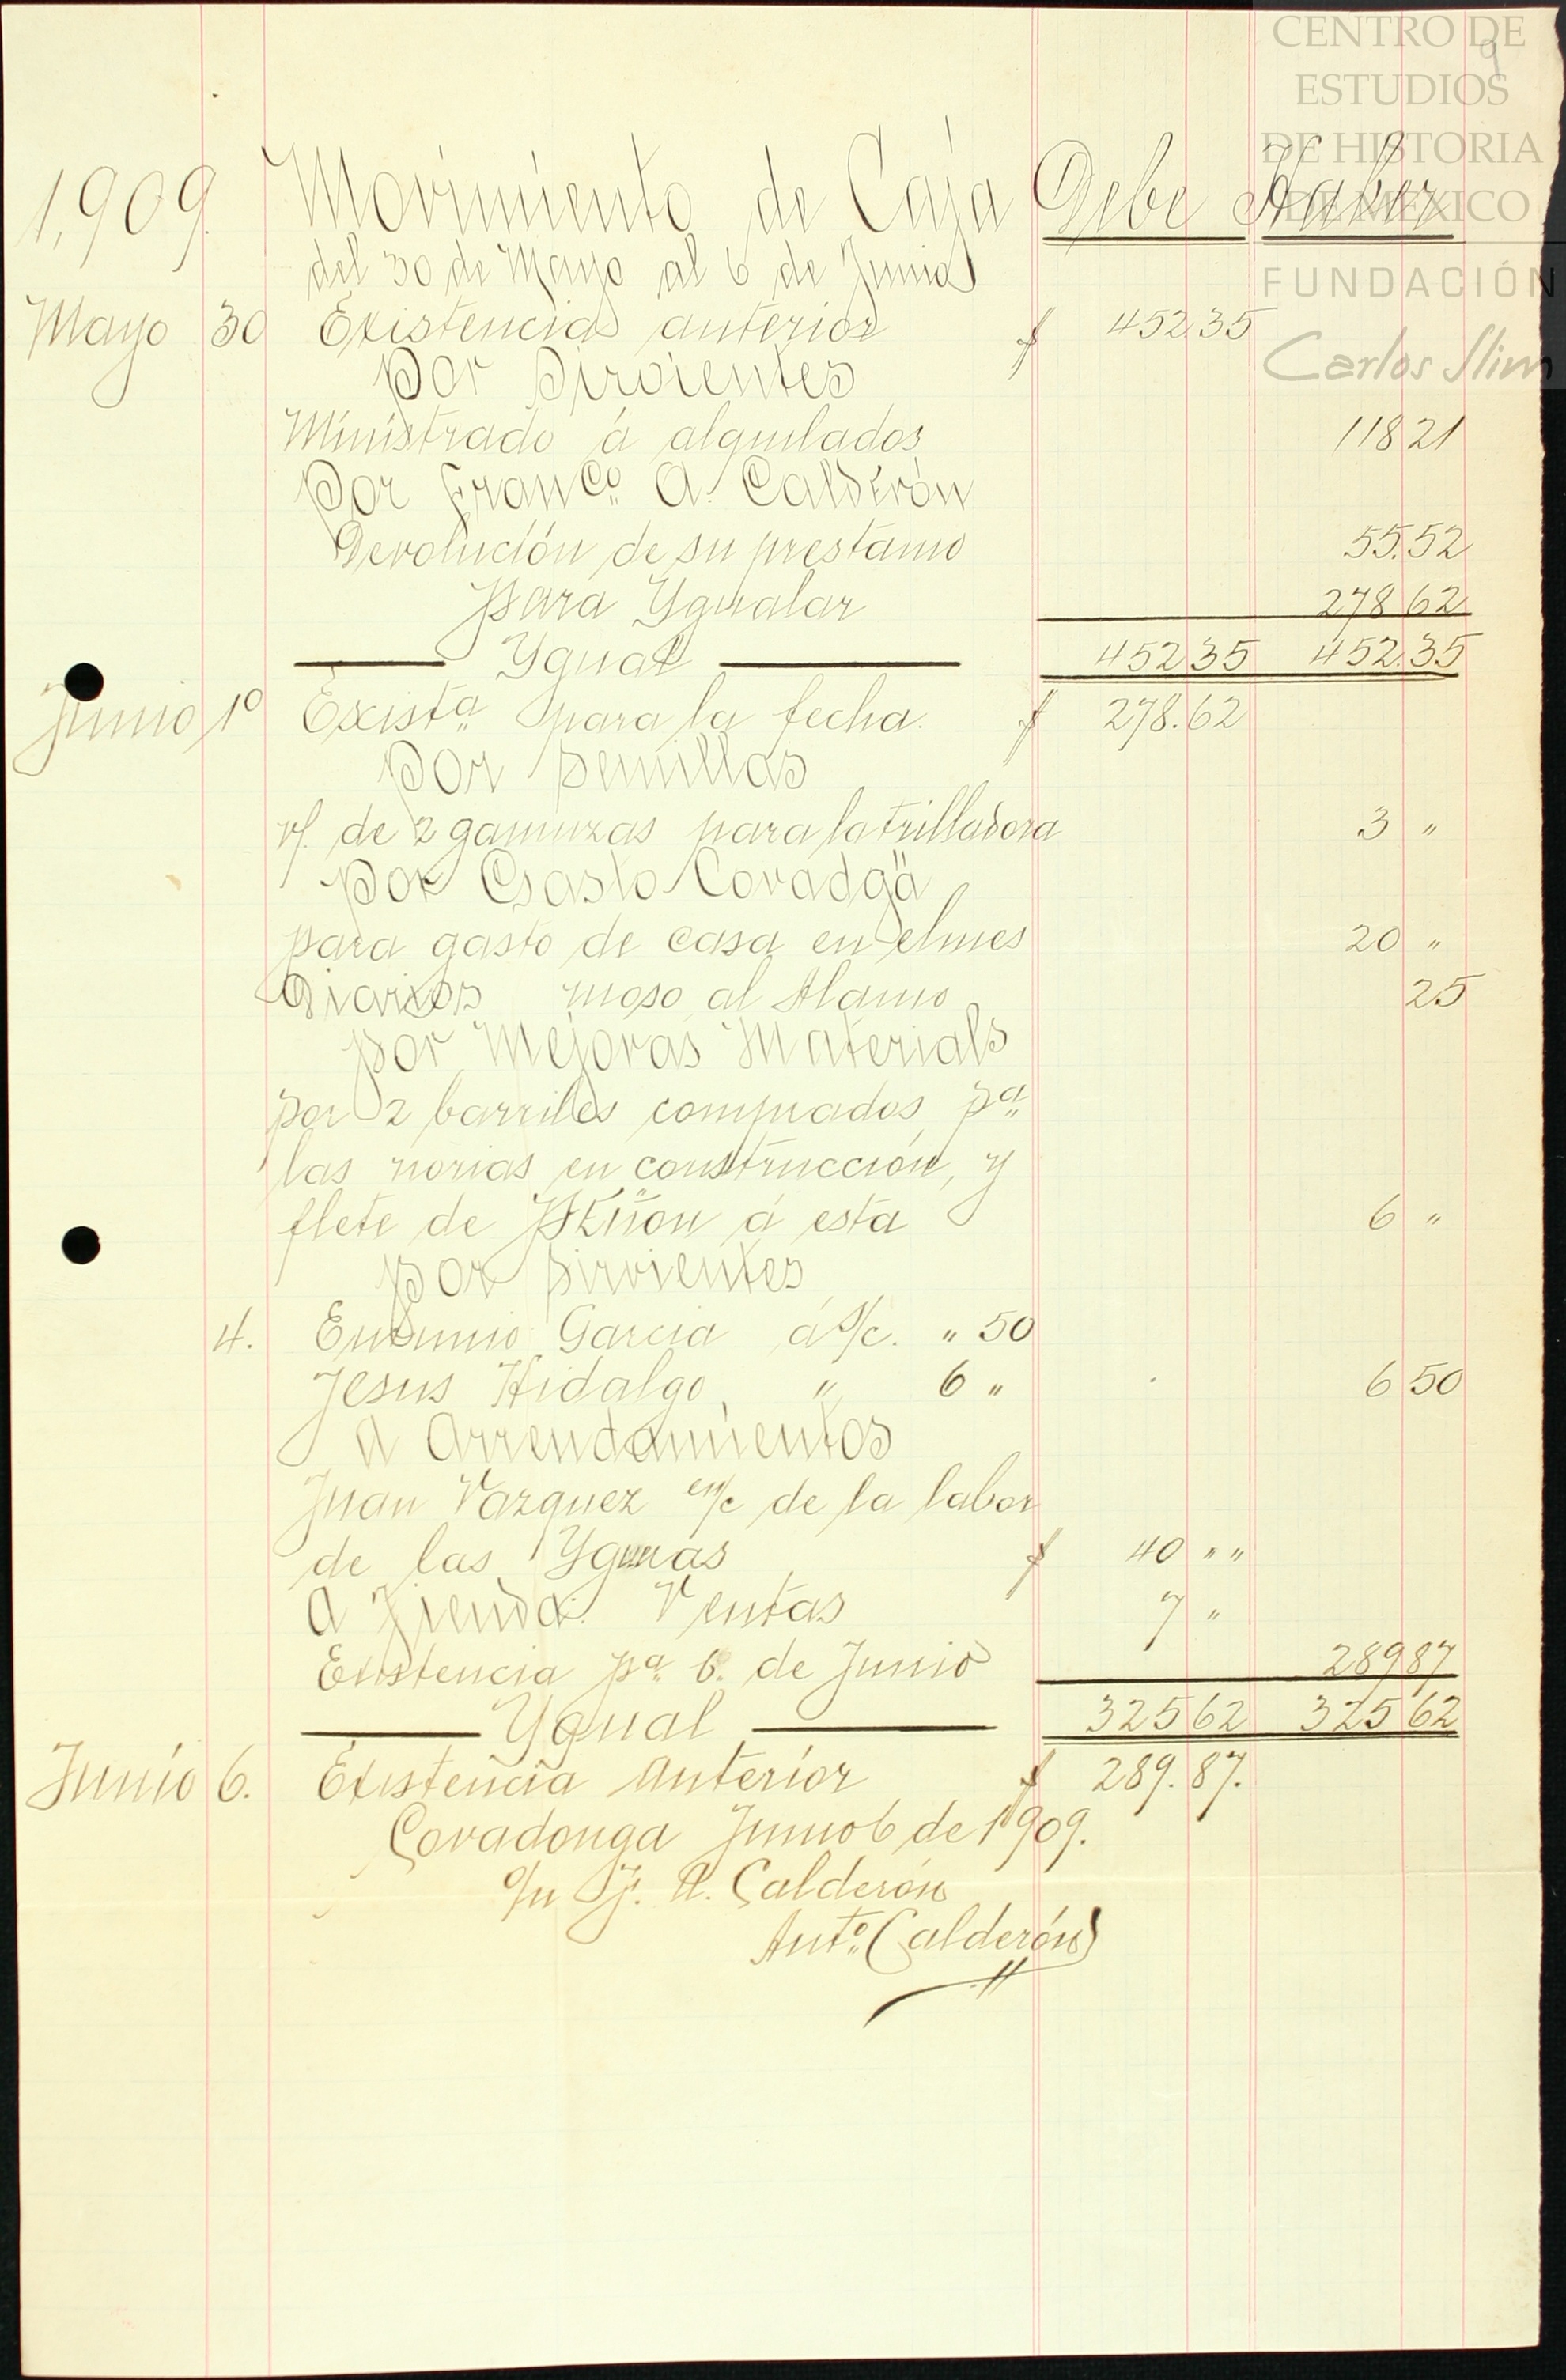 CENTRO DE
ESTUDIOS
DE HISTORIA
DE MÉXICO
FUNDACIÓN
Carlos Slim
9
1,909. Movimiento de Caja Debe Haber
del 30 de Mayo al 6 de Junio
Mayo 30 Existencia anterior $ 452 35
Por Sirvientes
Ministrado á alquilados 118 21
Por Franco. A. Calderón
Devolución de su prestamo 55.52
Para Ygualar 278 62
Ygual 452 35 452.35
Junio 1o Exista. para la fecha. $ 278.62
Por Semillas
v/. de 2 gamuzas para la trilladora 3 "
Por Gasto Covadga
para gasto de casa en el mes 20 "
Diarios moso al Alamo 25
Por Mejoras Materials
por 2 barriles comprados pa.
las norias en construcción, y
flete de Peñon á esta 6 "
Por Sirvientes
4. Garcia á s/c. " 50
Jesus Hidalgo, " 6 " 6 50
A Arrendamientos
Juan Vazquez en/c de la labor
de las $ 40 " "
A Tienda. Ventas 7 "
Existencia pa. 6. de Junio 289 87
Ygual 325 62 325 62
Junio 6. Existencia Anterior $ 289. 87.
Covadonga Junio 6 de 1909.
A. Calderón
Anto. Calderón